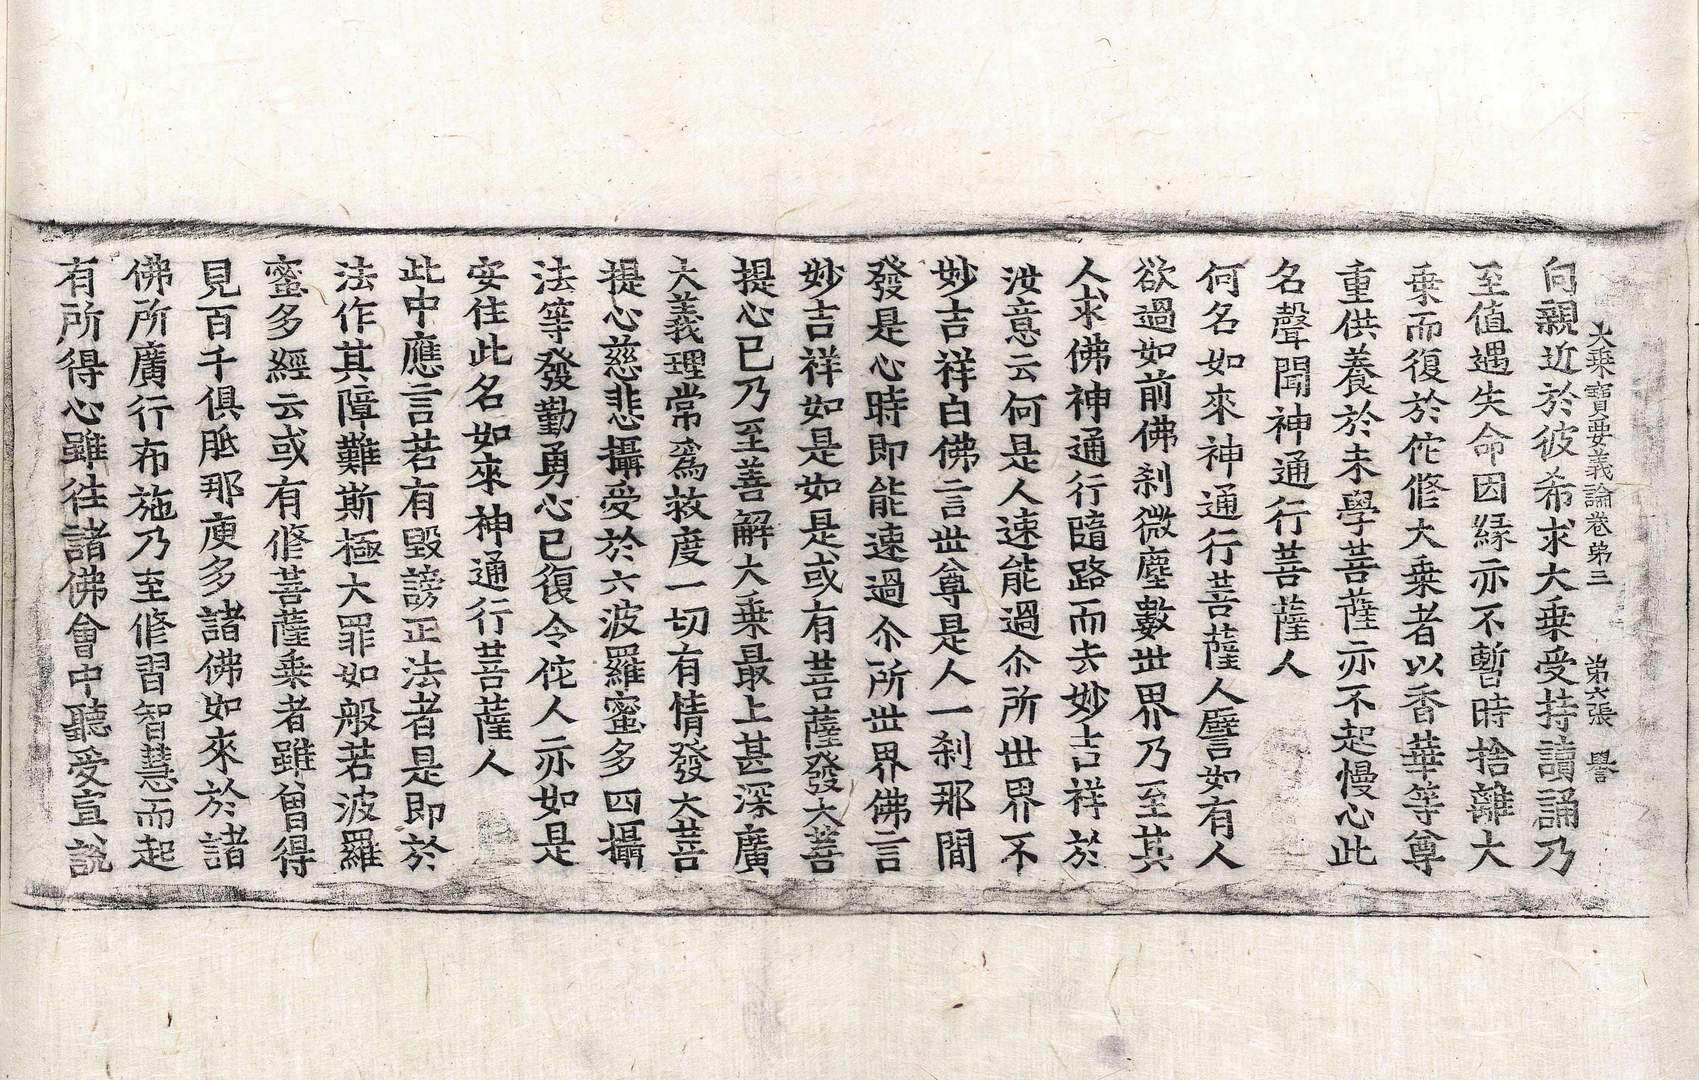 大乗寶要義論卷第三 第六張 譽
向親近於彼希求大乗受持讀誦乃
至值遇失命因縁亦不暫時捨離大
乗而復於佗修大乗者以香華等尊
重供養於未學菩薩亦不起慢心此
名聲聞神通行菩薩人
何名如來神通行菩薩人譬如有人
欲過如前佛刹微塵數世界乃至其
人求佛神通行隨路而去妙吉祥於
汝意云何是人速能過尒所世界不
妙吉祥白佛言世尊是人一刹那間
發是心時即能速過尒所世界佛言
妙吉祥如是如是或有菩薩發大菩
提心已乃至善解大乗最上甚深廣
大義理常爲救度一切有情發大菩
提心慈悲攝受於六波羅蜜多四攝
法等發勤勇心已復令佗人亦如是
安住此名如來神通行菩薩人
此中應言若有毀謗正法者是即於
法作其障難斯極大罪如般若波羅
蜜多經云或有修菩薩乗者雖曾得
見百千俱胝那庾多諸佛如來於諸
佛所廣行布施乃至修習智慧而起
有所得心雖往諸佛會中聽受宣說